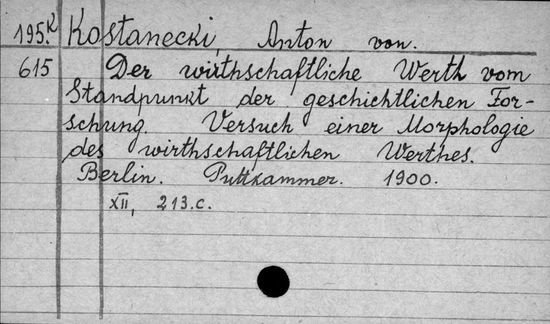 195.K Kostanecki, Anton von.
615 Der wirthschaftliche Werth vom
Standpunkt der geschichtlichen For-
schung. Versuch einer Morphologie
des wirthschaftlichen Werthes.
Berlin. Puttkammer. 1900.
XII, 213.c.